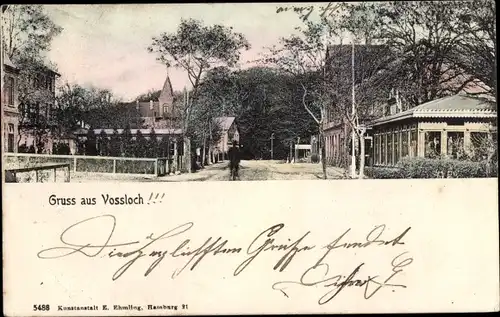 Gruss aus Vossloch !!!
Die herzlichsten Grüße sendet
5488 Kunstanstalt E. Ehmling, Hamburg 21